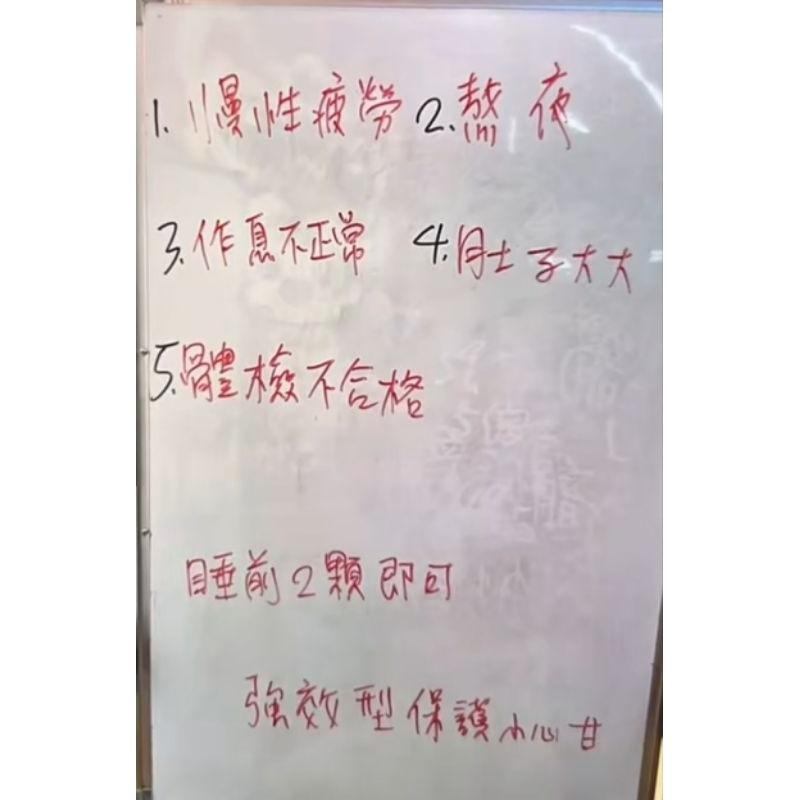 1. 慢性疲勞 2. 熬夜
3. 作息不正常 4. 肚子大大
5. 體檢不合格
睡前2顆即可
強效型保護小心甘